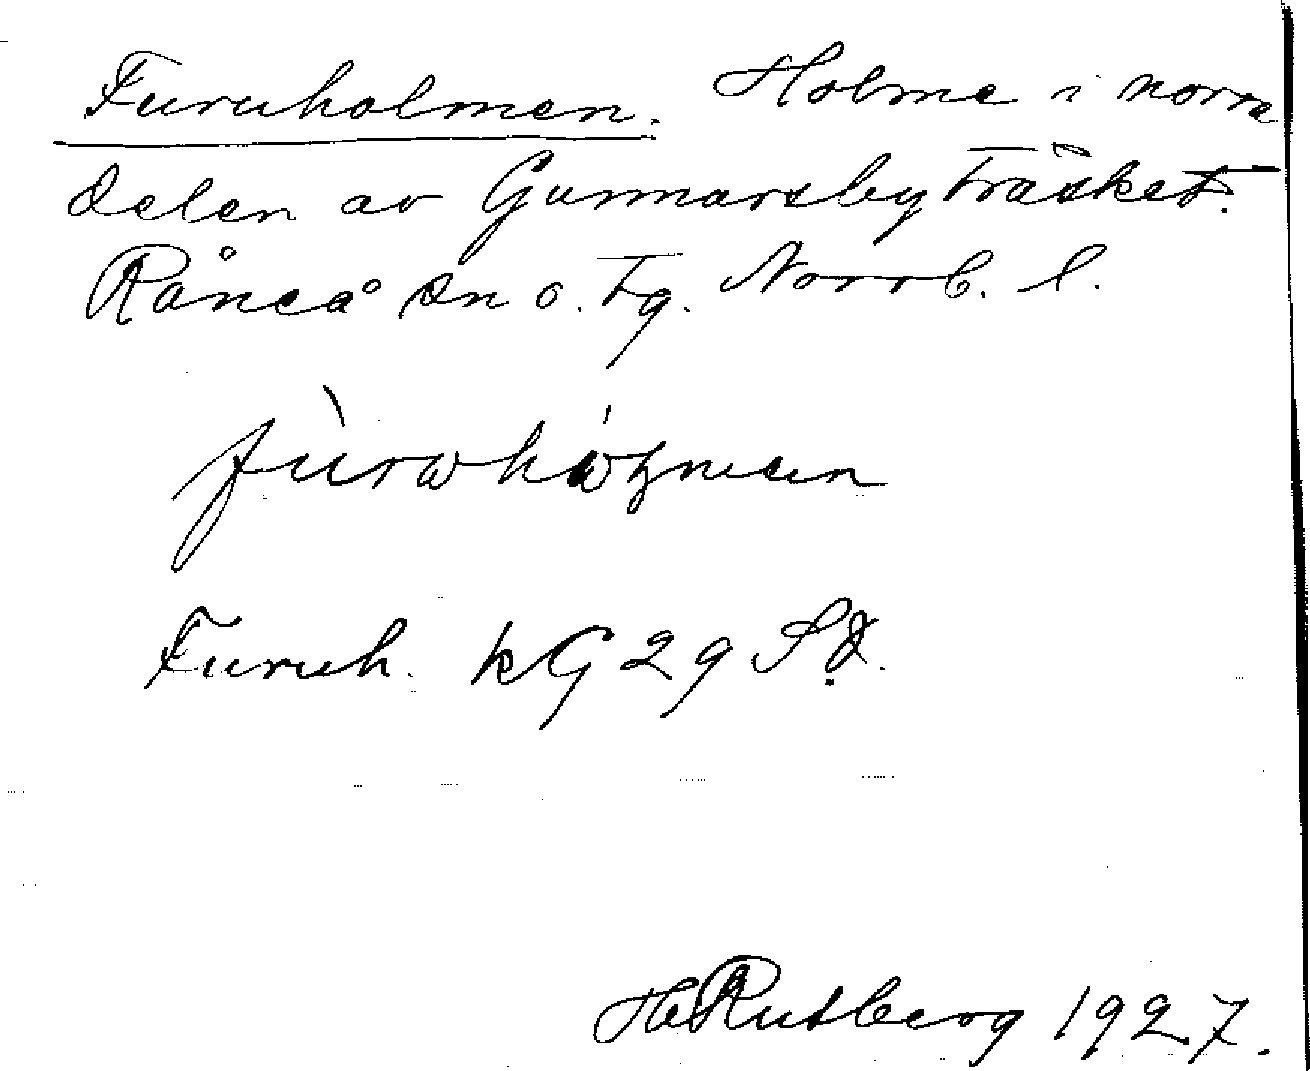 Furuholmen. Holme i norra
delen av Gunnarsbyträsket.
Råneå sn o. tg. Norrb. l.
Furuh. kG 29 Sd.
H Rutberg 1927.